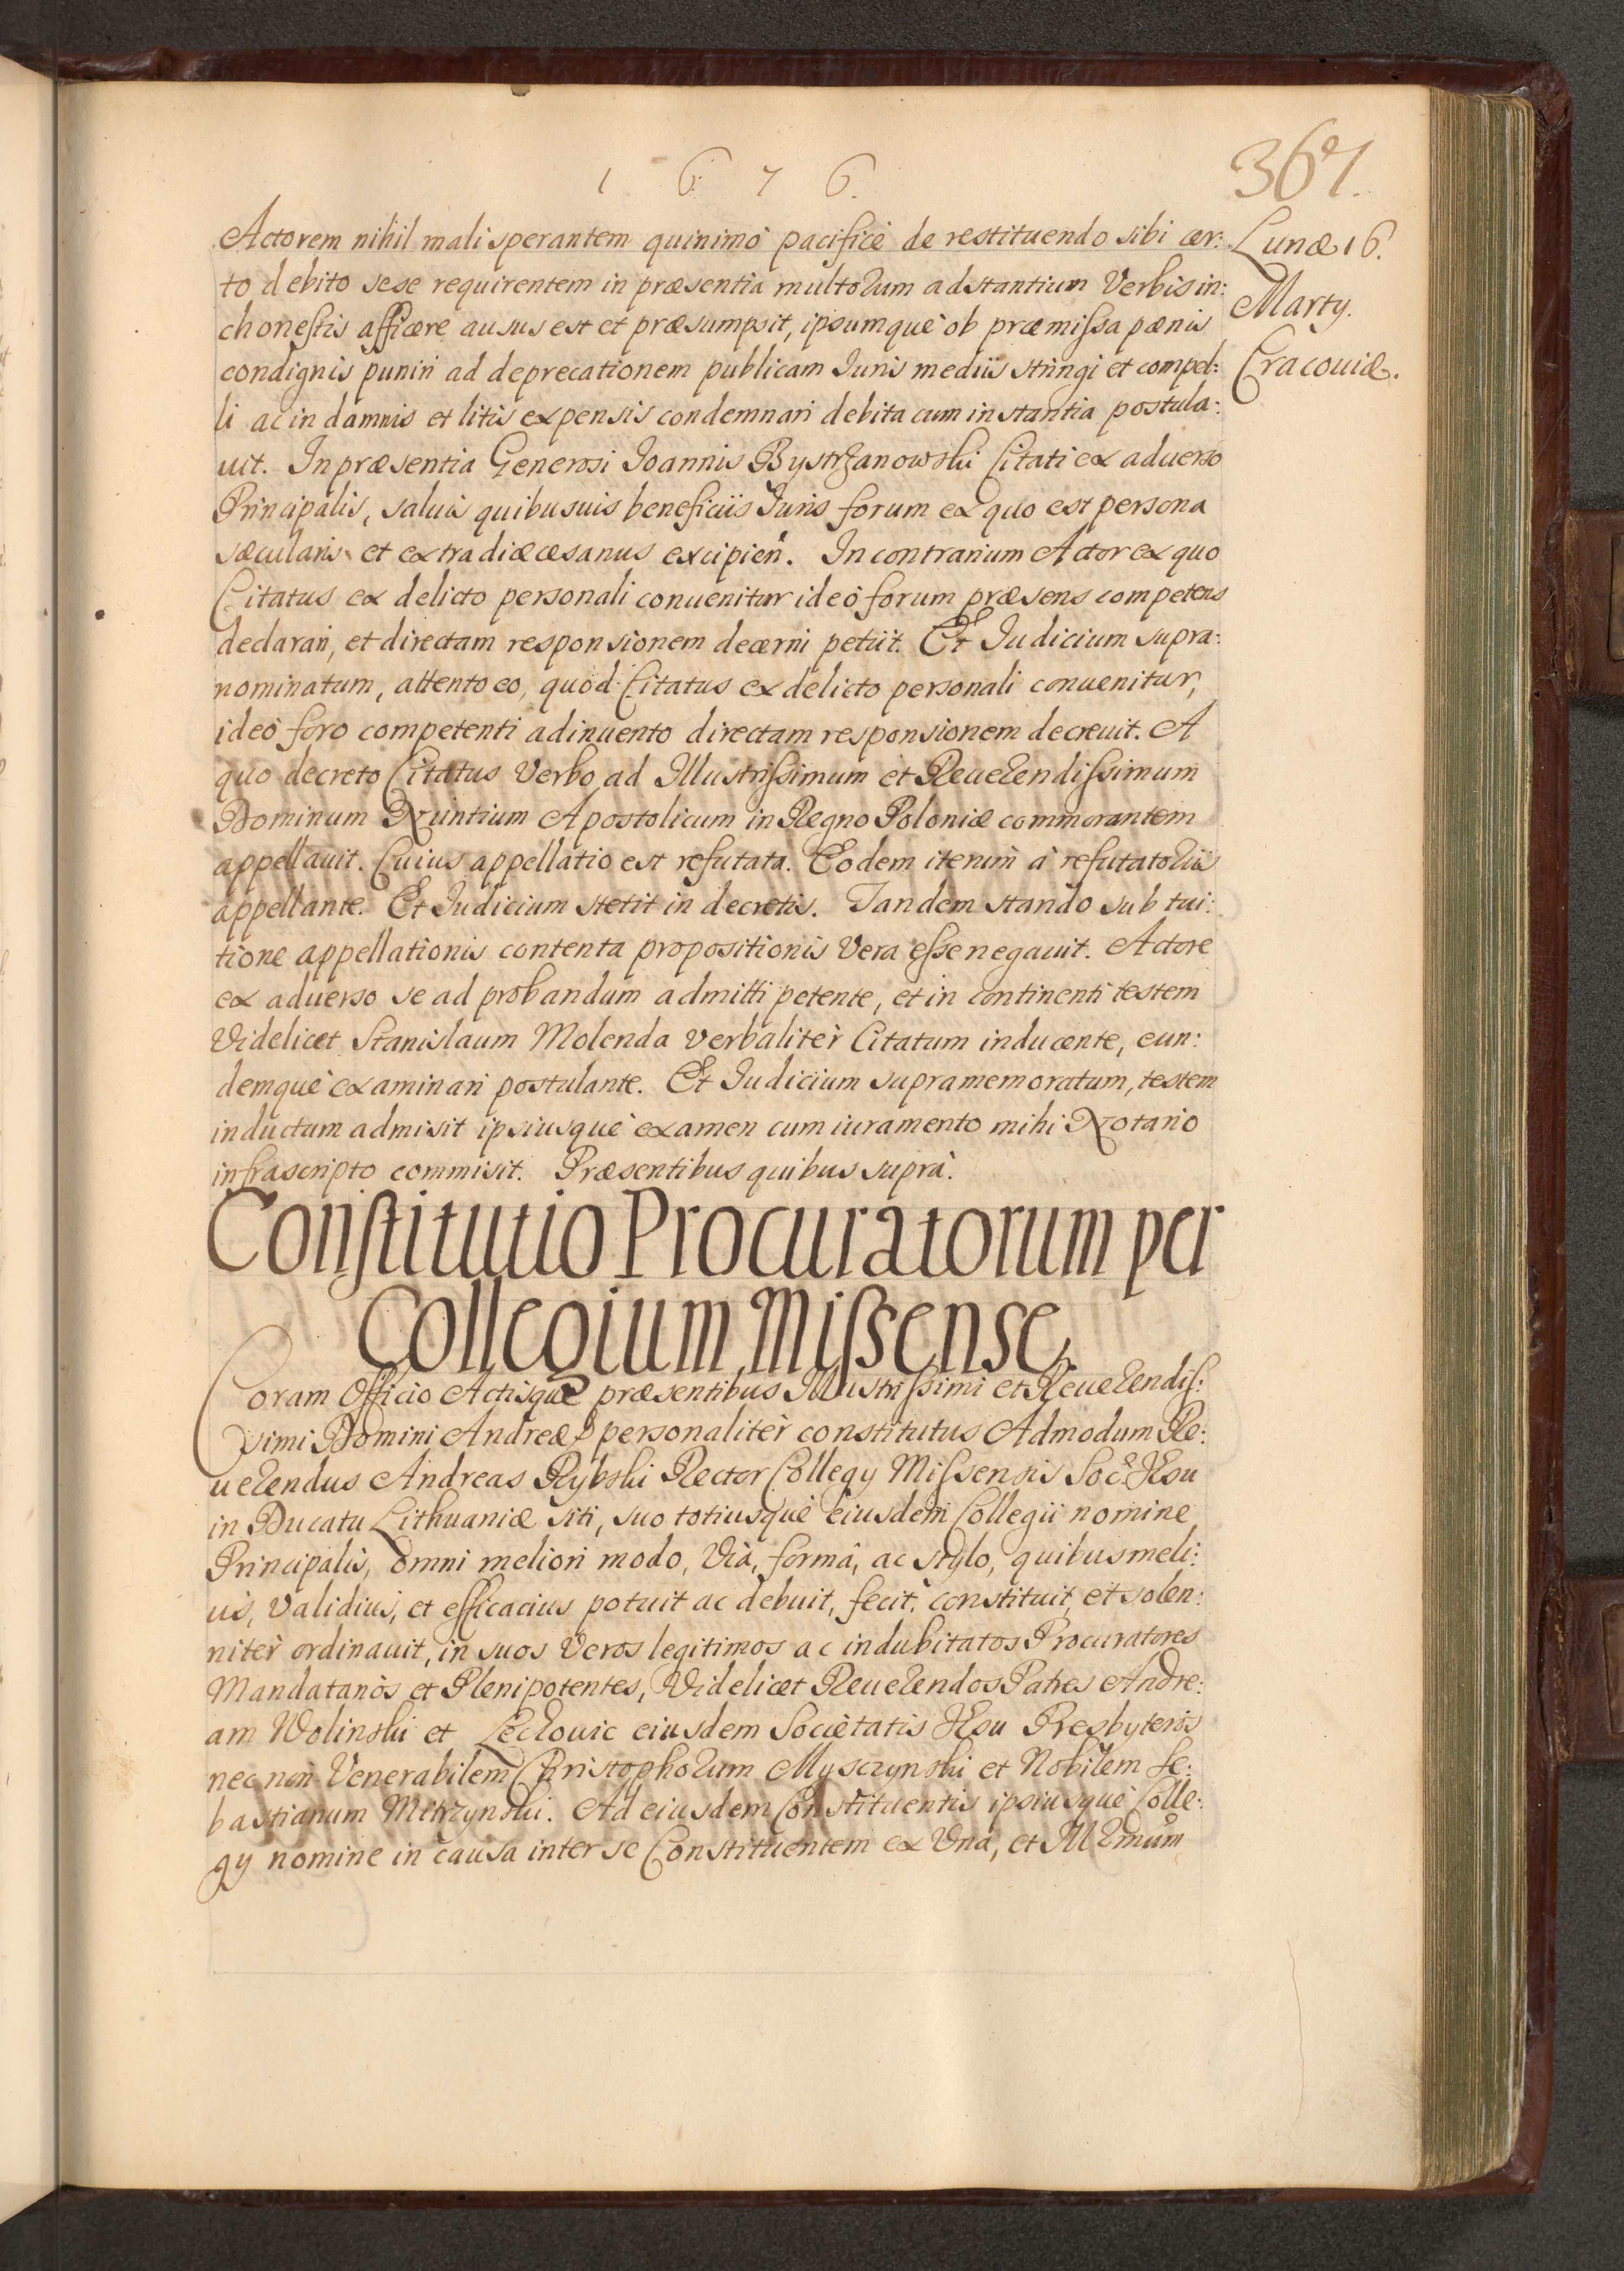 1 6 7 6.
367.
Lunæ 16.
Martÿ.
Cracouiæ.
Actorem nihil mali sperantem quinimò pacificè de restituendo sibi cer:
to debito sese requirentem in præsentia multorum adstantium Verbis in:
chonestis afficere ausus est et præsumpsit, ipsumquè ob præmissa pænis
condignis puniri ad deprecationem publicam Iuris medijs stringi et compel:
li ac in damnis et litis expensis condemnari debita cum instantia postula:
uit. In præsentia Generosi Ioannis Bystrzanowski Citati ex aduerso
Principalis, saluis quibusuis beneficijs Iuris forum ex quo est persona
sæcularis et extradiæcesanus excipien. In contrarium Actor ex quo
Citatus ex delicto personali conuenitur ideò forum præsens competens
declarari, et directam responsionem decerni petijt. Et Iudicium supra:
nominatum, attento eo, quòd Citatus ex delicto personali conuenitur,
ideò foro competenti adinuento directam responsionem decreuit. A
quo decreto Citatus Verbo ad Illustrissimum et Reuerendissimum
Dominum Nuntium Apostolicum in Regno Poloniæ commorantem
appellauit. Cuius appellatio est refutata. Eodem iterum à refutatorijs
appellante. Et Iudicium stetit in decretis. Tandem stando sub tui:
tione appellationis contenta propositionis Vera esse negauit. Actore
ex aduerso se ad probandum admitti petente, et in continenti testem
Videlicet Stanislaum Molenda verbalitèr Citatum inducente, eun:
demquè examinari postulante. Et Iudicium supramemoratum, testem
inductum admisit ipsiusquè examen cum iuramento mihi Notario
infrascripto commisit. Præsentibus quibus suprà.
Constitutio Procuratorum per
Collegium Missense
Coram Officio Actisquè præsentibus Illustrissimi et Reuerendis:
simi Domini Andreæ personalitèr constitutus Admodum Re:
uerendus Andreas Rybski Rector Collegÿ Missensis Soc. Iesu
in Ducatu Lithuaniæ siti, suo totiusquè eiusdem Collegij nomine
Principalis, omni meliori modo, Viâ, formâ, ac stylo, quibus meli:
us, validius, et efficacius potuit ac debuit, fecit, constituit, et solen:
nitèr ordinauit, in suos Veros legitimos ac indubitatos Procuratores
Mandatariòs et Plenipotentes, Videlicet Reuerendos Patres Andre:
am Wolinski et Leckouic eiusdem Societatis Iesu Presbyteros
nec non Venerabilem Christophorum Mysczynski et Nobilem Se:
bastianum Mitrzynski. Ad eiusdem Constituentis ipsiusquè Colle:
gÿ nomine in causa inter se Constituentem ex Vna, et Illrmum